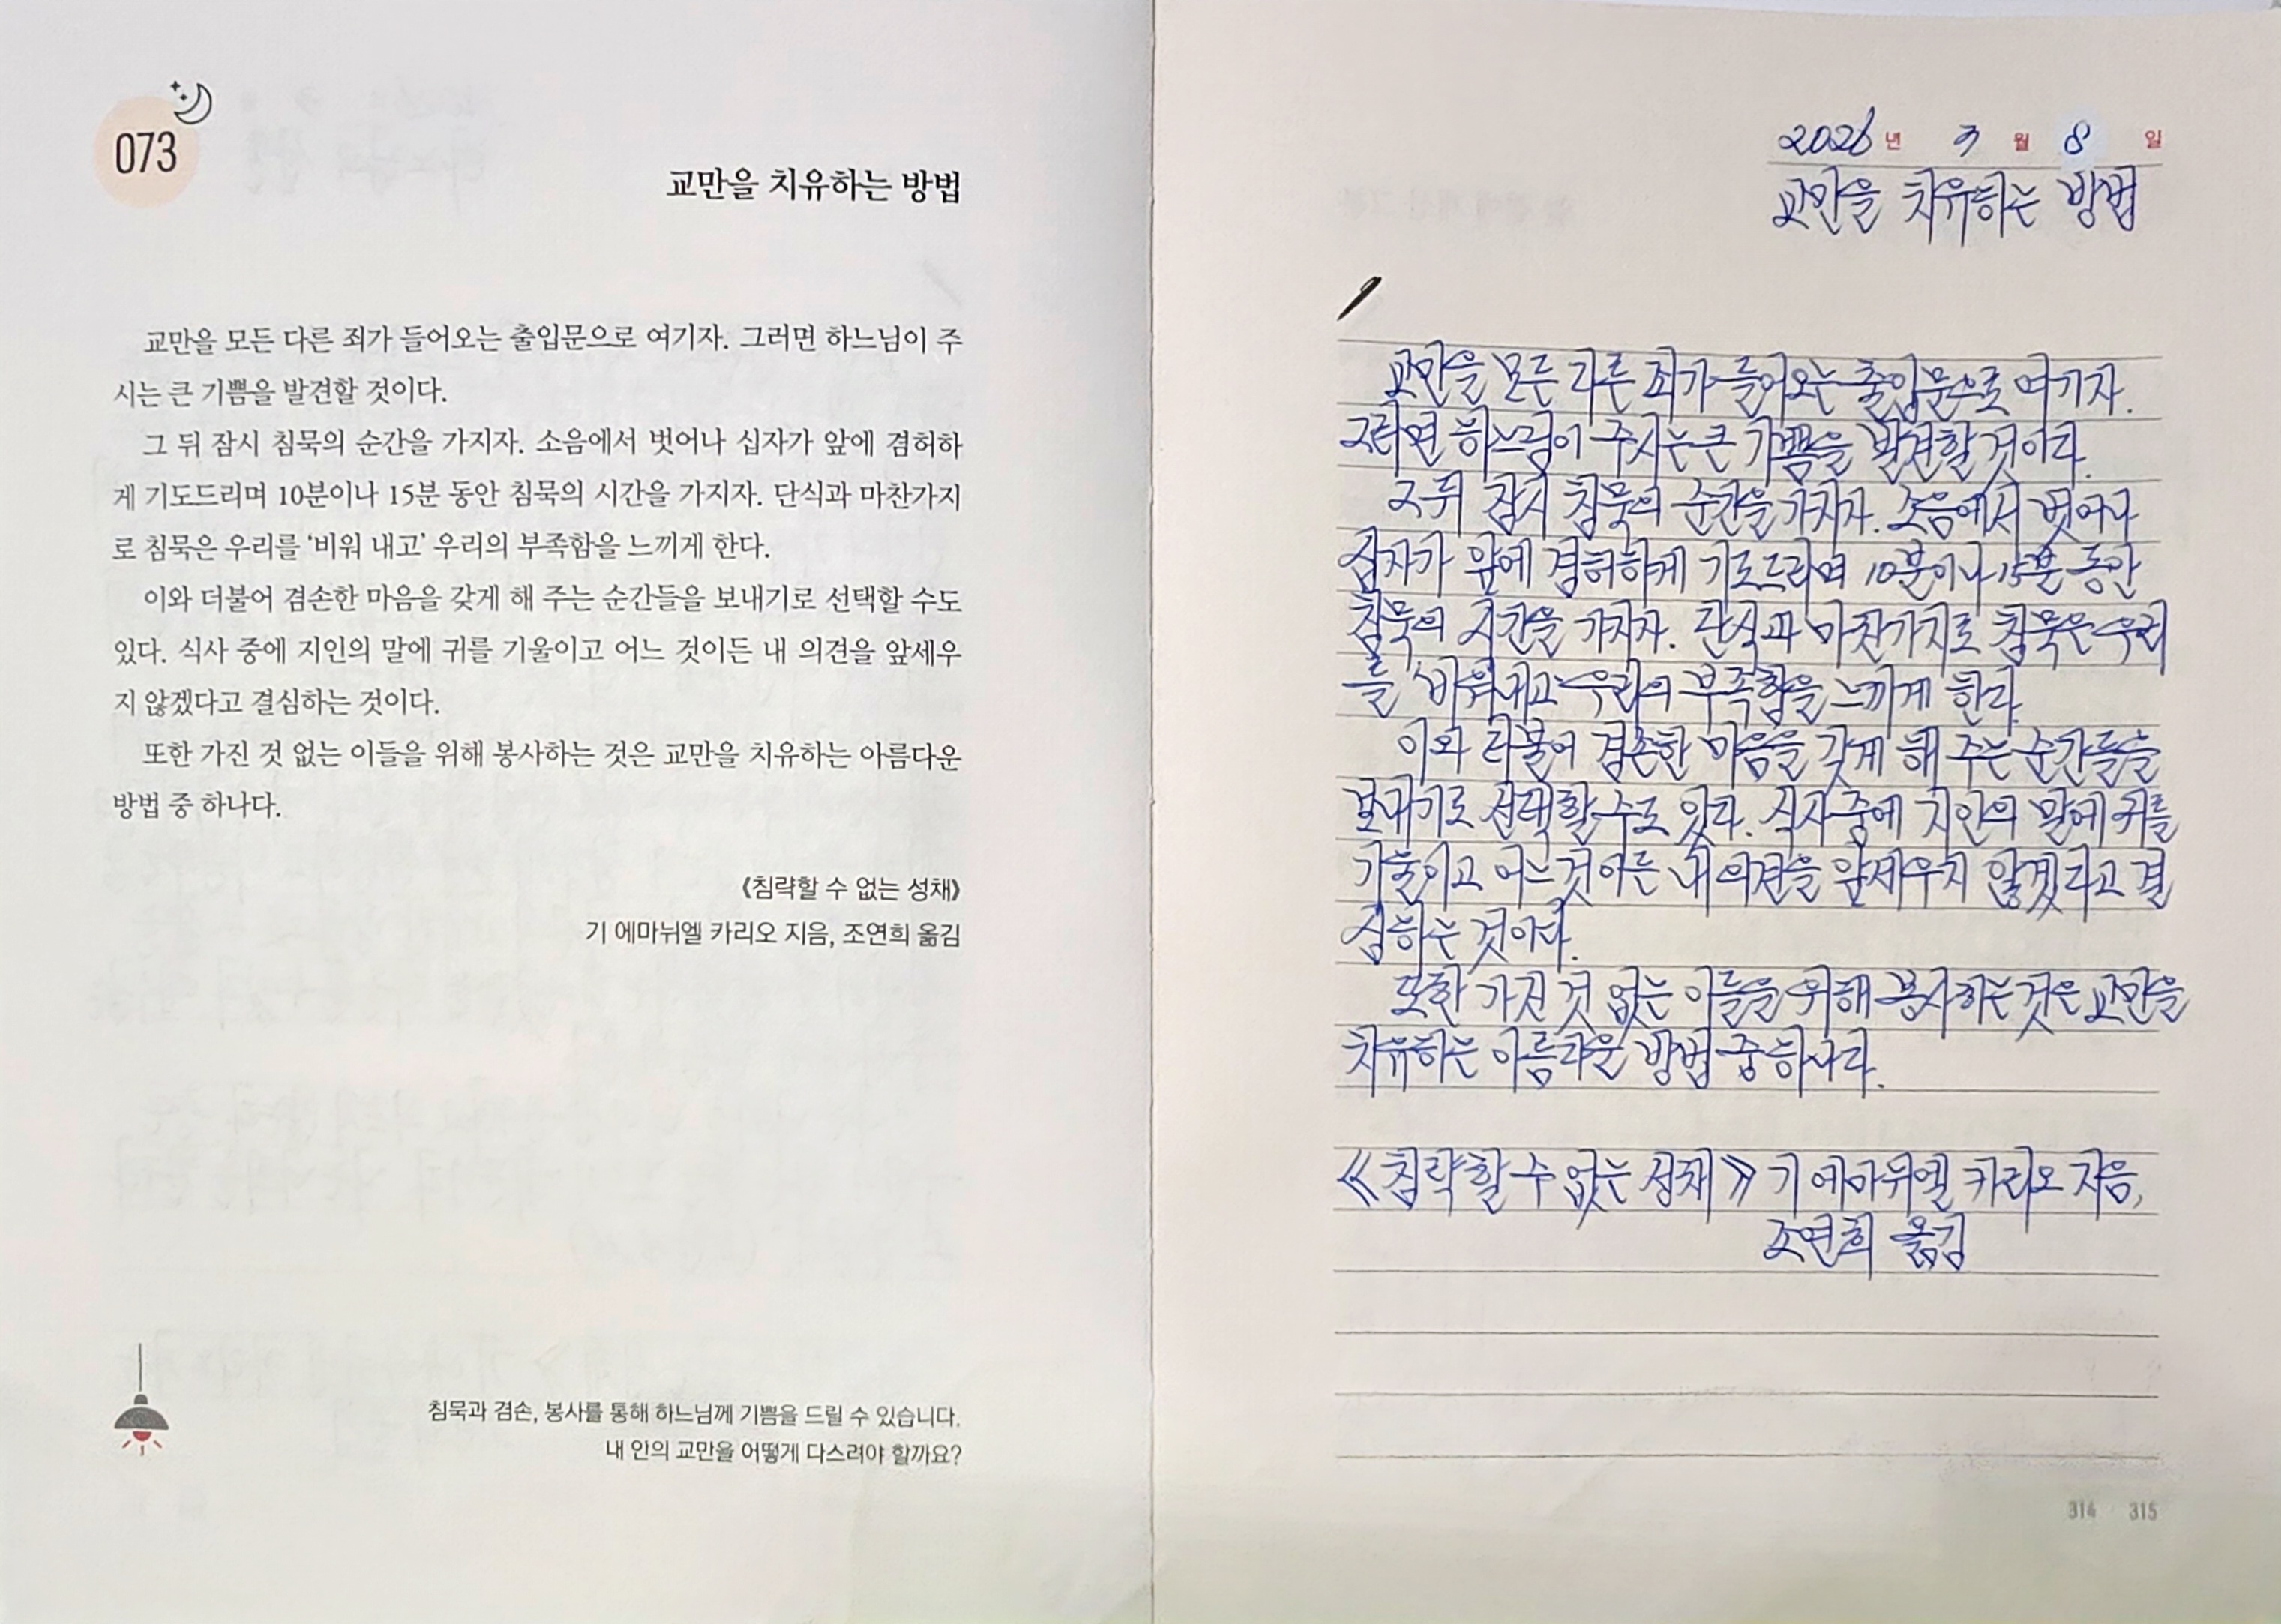 073
교만을 치유하는 방법
교만을 모든 다른 죄가 들어오는 출입문으로 여기자. 그러면 하느님이 주
시는 큰 기쁨을 발견할 것이다.
그 뒤 잠시 침묵의 순간을 가지자. 소음에서 벗어나 십자가 앞에 겸허하
게 기도드리며 10분이나 15분 동안 침묵의 시간을 가지자. 단식과 마찬가지
로 침묵은 우리를 ‘비워 내고’ 우리의 부족함을 느끼게 한다.
이와 더불어 겸손한 마음을 갖게 해 주는 순간들을 보내기로 선택할 수도
있다. 식사 중에 지인의 말에 귀를 기울이고 어느 것이든 내 의견을 앞세우
지 않겠다고 결심하는 것이다.
또한 가진 것 없는 이들을 위해 봉사하는 것은 교만을 치유하는 아름다운
방법 중 하나다.
《침략할 수 없는 성채》
기 에마뉘엘 카리오 지음, 조연희 옮김
침묵과 겸손, 봉사를 통해 하느님께 기쁨을 드릴 수 있습니다.
내 안의 교만을 어떻게 다스려야 할까요?
2026년 3월 8일
교만을 치유하는 방법
교만을 모든 다른 죄가 들어오는 출입문으로 여기자.
그러면 하느님이 주시는 큰 기쁨을 발견할 것이다.
그 뒤 잠시 침묵의 순간을 가지자. 소음에서 벗어나
십자가 앞에 겸허하게 기도드리며 10분이나 15분 동안
침묵의 시간을 가지자. 단식과 마찬가지로 침묵은 우리
를 '비워내고' 우리의 부족함을 느끼게 한다.
이와 더불어 겸손한 마음을 갖게 해 주는 순간들을
보내기로 선택할 수도 있다. 식사 중에 지인의 말에 귀를
기울이고 어느 것이든 내 의견을 앞세우지 않겠다고 결
심하는 것이다.
또한 가진 것 없는 이들을 위해 봉사하는 것은 교만을
치유하는 아름다운 방법 중 하나다.
《침략할 수 없는 성채》 기 에마뉘엘 카리오 지음,
조연희 옮김
314 315